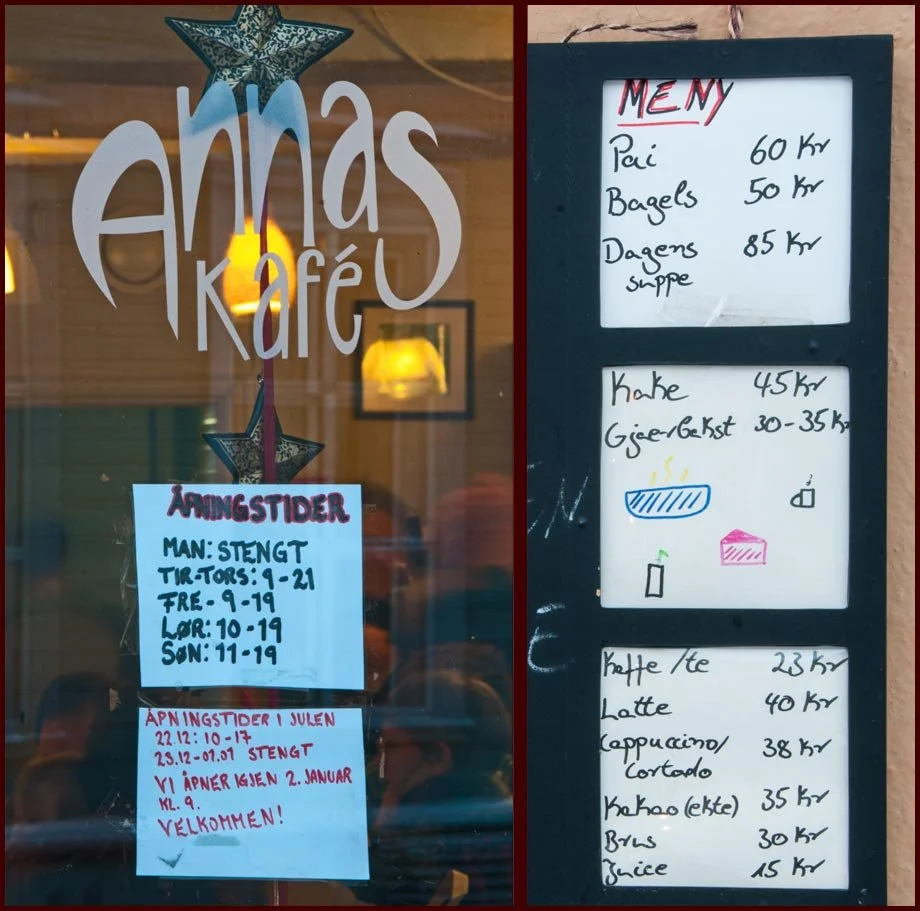 Annas
Kafé
ÅPNINGSTIDER
MAN: STENGT
TIR-TORS: 9-21
FRE- 9-19
LØR: 10-19
SØN: 11-19
ÅPNINGSTIDER I JULEN
22.12: 10-17
23.12-01.01 STENGT
VI ÅPNER IGJEN 2. JANUAR
KL. 9.
VELKOMMEN!
MENY
Pai 60 Kr
Bagels 50 Kr
Dagens 85 Kr
suppe
Kake 45 Kr
Gjærbakst 30-35 Kr
Kaffe/te 23 Kr
Latte 40 Kr
Cappuccino/ 38 Kr
Cortado
Kakao (ekte) 35 Kr
Brus 30 Kr
Juice 15 Kr